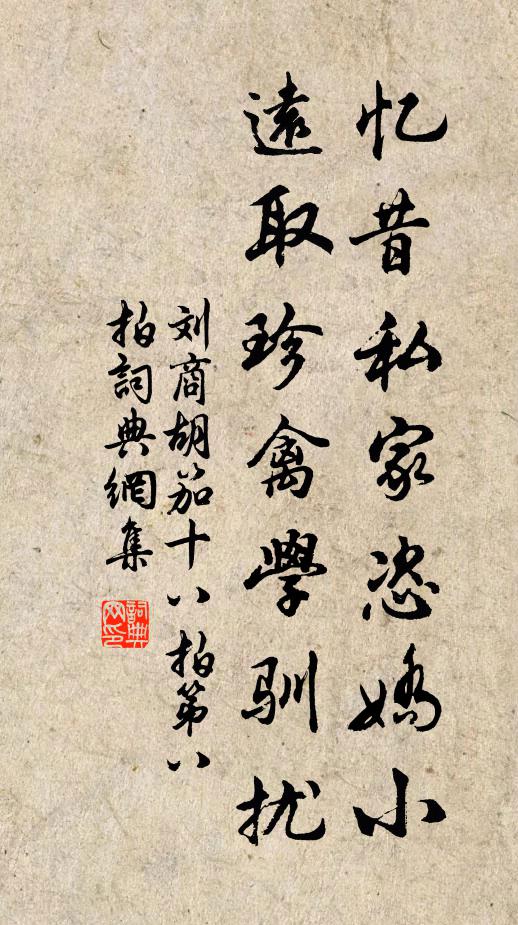 忆昔私家恣嬌小
遠取珍禽學馴扰
刘商胡笳十八拍第八
拍詞典網集
詞典网印